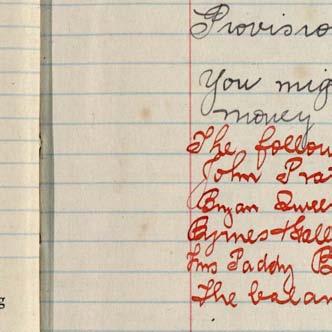 Provisio
You mig
money
The follow
John Pra
Bryan Swee
Byrnes + Galle
Paddy B
The balan
g